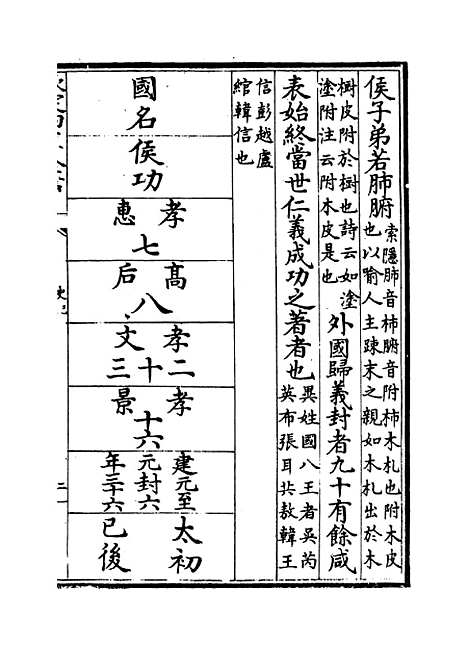 侯子弟若肺腑
索隱肺音柿腑音附柿木札也附木皮
也以喻人主疎末之親如木札出於木
樹皮附於樹也詩云如塗
塗附注云附木皮是也
外國歸義封者九十有餘咸
表始終當世仁義成功之著者也
異姓國八王者吳芮
英布張耳共敖韓王
信彭越盧
綰韓信也
國名
侯功
孝惠七
高后八
孝文二十三
孝景十六
建元至元封六年三十六
太初已後